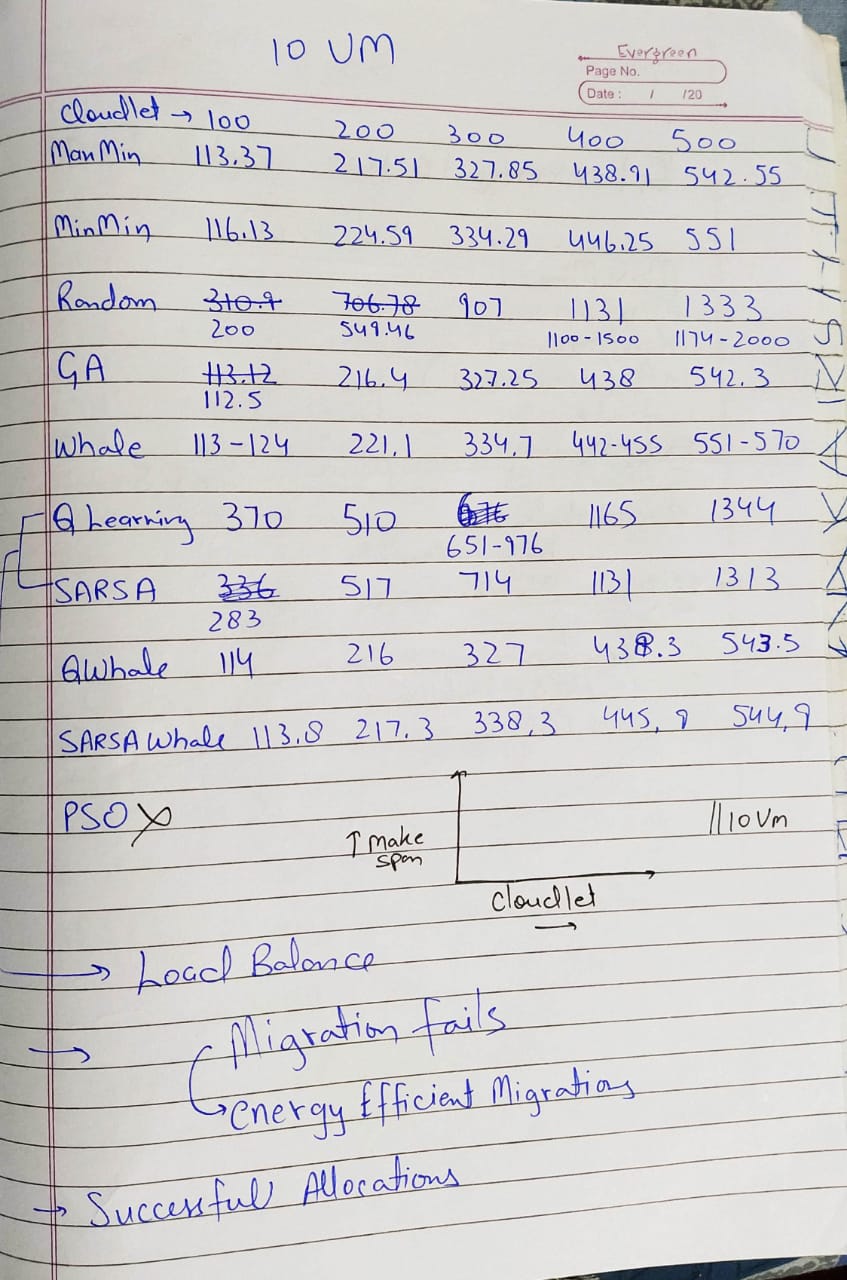 10 VM
Evergreen
Page No.
Date : / /20
Cloudlet → 100 200 300 400 500
ManMin 113.37 217.51 327.85 438.91 542.55
MinMin 116.13 224.59 334.29 446.25 551
Random 310.9 706.78 907 1131 1333
200 549.46 1100-1500 1174-2000
GA 113.12 216.4 327.25 438 542.3
112.5
Whale 113-124 221.1 334.7 442-455 551-570
Q Learning 370 510 676 1165 1344
651-976
SARSA 336 517 714 1131 1313
283
QWhale 114 216 327 438.3 543.5
SARSA Whale 113.8 217.3 338.3 445.9 544.9
PSO X
↑ make
span
||10 Vm
Cloudlet
→
→ Load Balance
→ Migration fails
→ energy Efficient Migrations
→ Successful Allocations